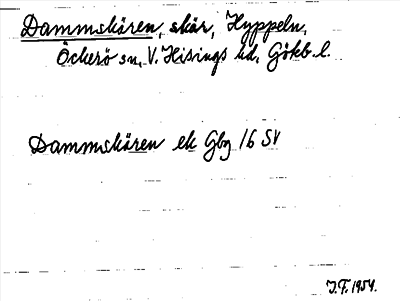 Dammskären, skär, Hyppeln,
Öckerö sn, V. Hisings hd, Göteb. l.
Dammskären ek Gbg 16 SV
J.F. 1954.